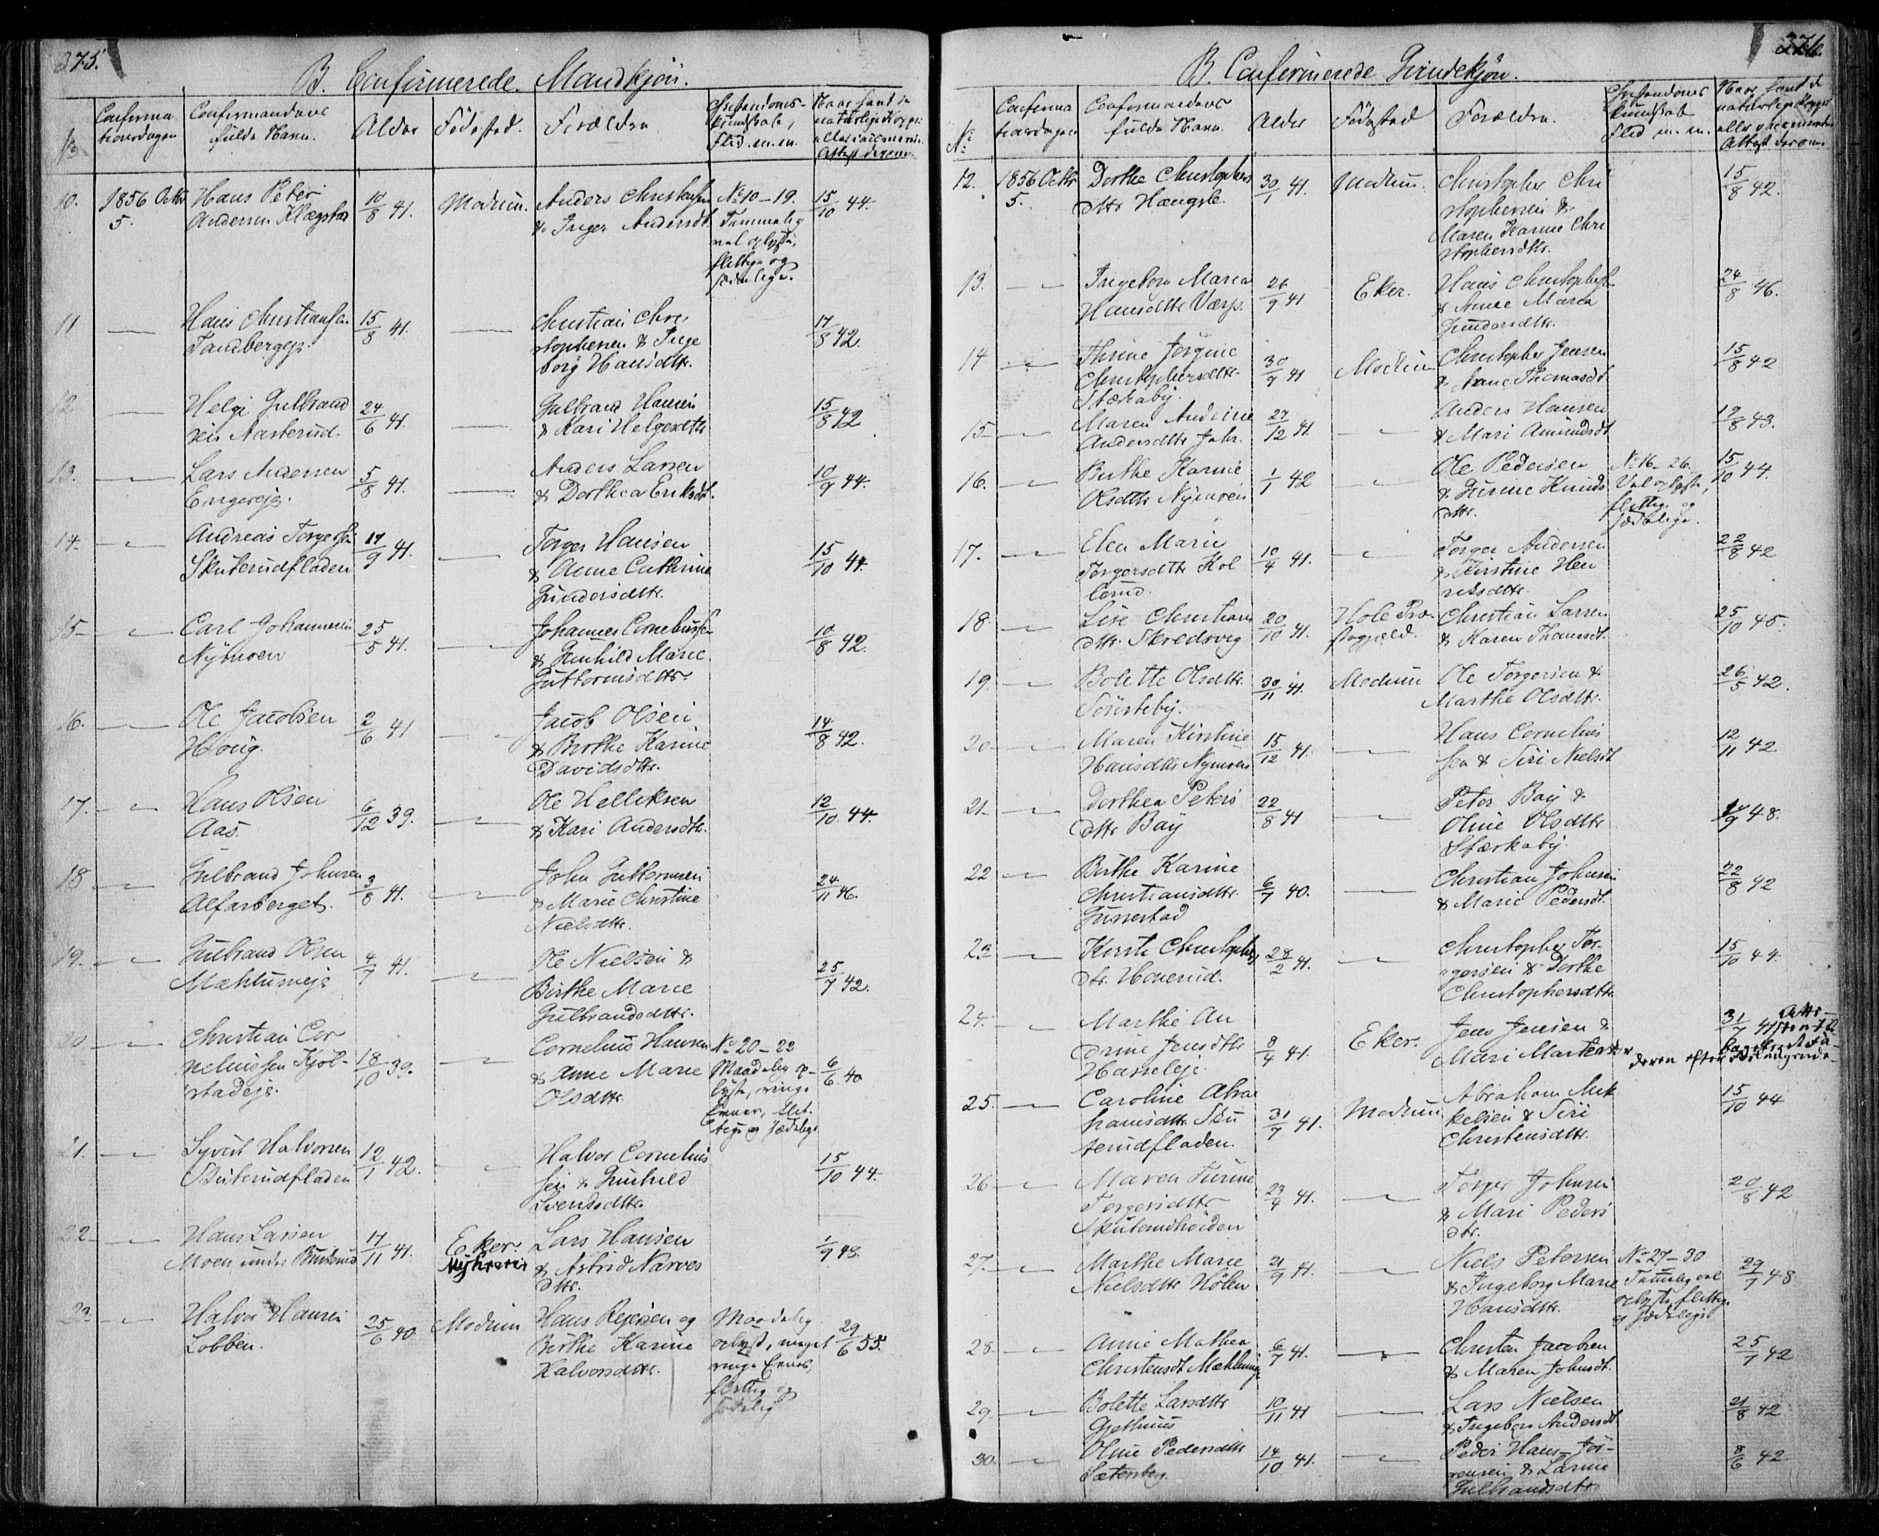 375.
B. Confirmerede Mandkjön.
No
Confirma
tionsdagen
Confirmandens
fulde Navn.
Alder
Födested.
Forældre
Christendoms-
kundskab,
Flid m.m.
Naar havt de
naturlige Kopper
eller vaccineret
Attest derom
10. 1856 Octbr
5.
Hans Peter
Andersen Klægstad
10/8 41.
Modum.
Anders Christensen
& Inger Andersdt.
No 10-19.
Temmelig
vel oplyste,
flittige og
sædelige.
15/10 44.
11
Hans Christiansen
Sandbergejr.
15/8 41.
Christian Chri
stophersen & Inge
borg Hansdttr.
17/8 42.
12
Helge Gulbrand
sen Aasterud.
24/6 41.
Gulbrand Hansen
& Kari Helgesdttr
15/8 42
13.
Lars Andersen
Engereje.
5/8 41.
Anders Larsen
& Dorthea Eriksdt.
10/9 44.
14.
Andreas Torgersen
Skuterudfladen
17/9 41.
Torger Hansen
& Anne Cathrine
Gundersdttr.
15/10 44.
15
Carl Johannesen
Nymoen
25/5 41.
Johannes Corneliussen
& Gunhild Marie
Guttormsdttr.
10/8 42.
16.
Ole Jacobsen
Houg.
2/6 41
Jacob Olsen
& Berthe Karine
Davidsdttr.
14/8 42.
17.
Hans Olsen
Aas
6/12 39.
Ole Helliksen
& Kari Andersdttr.
12/10 44.
18
Gulbrand Johnsen
Alfarberget.
3/8 41.
John Guttormsen
& Marie Christine
Nielsdttr.
24/11 46.
19.
Gulbrand Olsen
Mæhlumeje
4/7 41.
Ole Nielsen &
Birthe Marie
Gulbrandsdttr.
25/7 42.
20
Christian Cor
neliussen Kjöl
stadeje.
18/10 39.
Cornelius Hansen
& Anne Marie
Olsdttr.
No 20-22
Maadelig op-
lyste, ringe
Evner, flit-
tige og sædelige
6/6 40
21.
Syvert Halvorsen
Skuterudfladen
12/1 42.
Halvor Cornelius
sen & Gunhild
Svendsdttr.
15/10 44.
22
Hans Larsen
Moen under Buskerud
17/11 41.
Eker.
Lars Hansen
& Astrid Narves
dttr.
1/9 43.
23.
Halvor Hansen
Lobben.
25/6 40.
Modum
Hans Rejersen og
Birthe Karine
Halvorsdttr.
Maadelig
oplyst, meget
ringe Evner,
flittig og
sædelig
29/6 55.
376
B. Confirmerede Qvindekjön.
No
Confirma
tionsdagen
Confirmandens
fulde Navn.
Alder
Födested
Forældre.
Christendoms
kundskab
Flid m.m.
Naar havt de
naturlige Kopper
eller vaccineret
Attest derom.
12. 1856 Octbr
5.
Dorthe Christophers
dttr Hængsle.
30/1 41.
Modum.
Christopher Chri
stophersen &
Maren Karine Chri
stophersdttr.
15/8 42.
13.
Ingeborg Maria
Hansdttr Værp.
26/9 41
Eker.
Hans Christophers.
& Anne Maria
Gundersdttr.
24/8 46.
14
Thrine Jörgine
Christophersdttr
Stærkeby.
30/9 41
Modum
Christopher Jensen
& Anne Thomasdt
15/8 42
15
Maren Andrine
Andersdttr
27/12 41.
Anders Hansen
& Mari Amundsdt
12/8 43.
16.
Birthe Karine
Olsdttr Nymoen
1/1 42
Ole Pedersen
& Gurine Knuds
dttr.
No 16-26.
Vel oplyste,
flittige og
sædelige.
15/10 44.
17.
Elen Marie
Torgersdttr Kol
lerud.
10/4 41.
Torger Andersen
& Kirstine Hen
riksdttr.
22/8 42
18.
Lise Christians
dttr Skredsvig
20/10 41.
Hole Præ-
stegjeld.
Christian Larsen
& Karen Thomsdt.
25/10 45.
19.
Bolette Olsdttr.
Sönsteby.
30/11 41.
Modum
Ole Torgersen &
Marthe Olsdttr.
26/5 42.
20.
Maren Kirstine
Hansdttr Nymoen
15/12 41.
Hans Cornelius
sen & Siri Nielsdt
12/11 42.
21.
Dorthea Peters
dttr Bay
22/8 41
Peter Bay &
Oline Olsdttr
Stærkeby.
9 48.
22
Birthe Karine
Christiansdttr.
Gunnestad
6/7 40.
Christian Johnsen
& Marie Pedersdt.
22/8 42
23
Kirsti Christophers
dtr. Hoverud.
28/2 41.
Christopher Tor-
gersen & Dorthe
Christophersdttr.
15/10 44.
24.
Marthe An
drine Jensdttr
Hasseleje.
8/4 41.
Eker.
Jens Jensen &
Mari
31/7
25.
Caroline Abra
hamsdttr. Sku
terudfladen.
31/7 41.
Modum
Abraham Mik
kelsen & Siri
Christensdttr.
15/10 44
26
Maren Turine
Torgersdttr
Skuterudheiden
23/4 41.
Torger Johnsen
& Mari Peders
dtr.
20/8 42
27.
Marthe Marie
Nielsdttr Hölen
21/9 41.
Niels Petersen
& Ingeborg Marie
Hansdttr.
No 27-30
Temmelig vel
oplyste, flittige
og sædelige
29/7 48
28.
Anne Mathea
Christensdt Mæhlumeje
6/7 41.
Christen Jacobsen
& Maren Johnsdt.
25/7 42
29.
Bolette Larsdttr
Gjethuus
10/11 41
Lars Nielsen
& Ingeborg Andersdt
21/8 42
30.
Oline Pedersdttr
Sætersberg.
14/10 41.
Peder Hans Jör-
gensen & Larine
Gulbrandsdttr
8/6 42